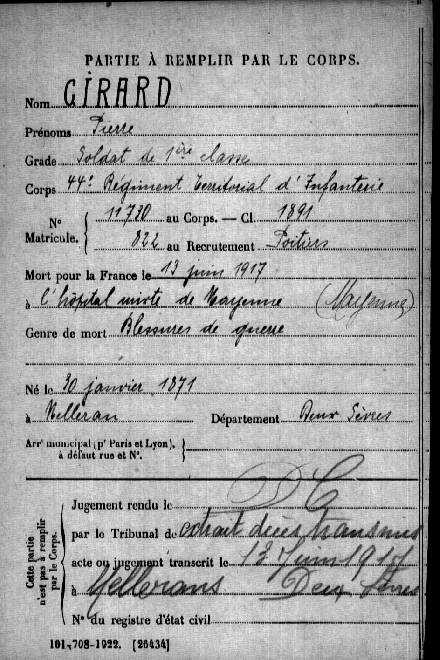 PARTIE À REMPLIR PAR LE CORPS.
Nom GIRARD
Prénoms Pierre
Grade Soldat de 1ère classe
Corps 44e Régiment Territorial d'Infanterie
N° Matricule. { 11720 au Corps. — Cl. 1891
822 au Recrutement Poitiers
Mort pour la France le 13 juin 1917
à l'hôpital mixte de Mayenne (Mayenne)
Genre de mort Blessures de guerre
Né le 30 janvier 1871
à Melleran Département Deux Sèvres
Arrt municipal (pr Paris et Lyon), à défaut rue et N°. {
Cette partie n'est pas à remplir par le Corps.
DC
Jugement rendu le
par le Tribunal de extrait décès transmis
acte ou jugement transcrit le 13 Juin 1917
à Mellerans Deux Sèvres
N° du registre d'état civil
101-708-1922. [26434]